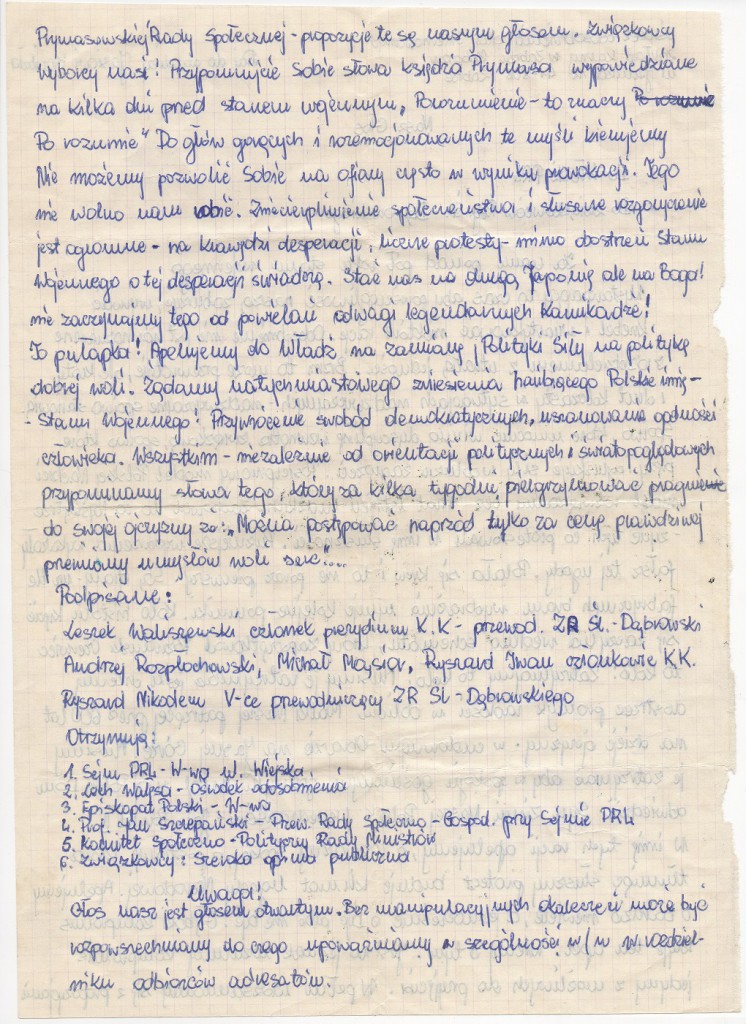 Prymasowskiej Rady Społecznej - propozycje te są naszym głosem. Związkowcy
Wyborcy nasi! Przypomnijcie Sobie słowa księdza Prymasa wypowiedziane
na kilka dni przed stanem wojennym „Porozumienie - to znaczy Po rozumie
Po rozumie" Do głów gorących i rozemocjonowanych te myśli kierujemy
Nie możemy pozwolić Sobie na ofiary często w wyniku prowokacji. Tego
nie wolno nam robić. Zniecierpliwienie społeczeństwa i słuszne rozgoryczenie
jest ogromne - na krawędzi desperacji, liczne protesty - mimo obostrzeń Stanu
Wojennego o tej desperacji świadczą. Stać nas na drugą Japonię ale na Boga!
nie zaczynajmy tego od powielania odwagi legendarnych Kamikadze!
To pułapka! Apelujemy do Władz, na zamianę Polityki Siły na politykę
dobrej woli. Żądamy natychmiastowego zniesienia hańbiącego Polskie imię -
- Stanu Wojennego! Przywrócenie swobód demokratycznych, uszanowanie godności
człowieka. Wszystkim - niezależnie od orientacji politycznych i światopoglądowych
przypominamy słowa tego, który za kilka tygodni pielgrzymować pragnie
do swojej ojczyzny „Można postępować naprzód tylko za cenę prawdziwej
przemiany umysłów woli serc"....
Podpisane:
Leszek Waliszewski członek prezydium K.K - przewod. ZR Śl.-Dąbrowski
Andrzej Rozpłochowski, Michał Mąsior, Ryszard Iwan członkowie K.K.
Ryszard Nikodem V-ce przewodniczący ZR Śl-Dąbrowskiego
Otrzymują:
1. Sejm PRL - W-wa ul. Wiejska
2. Lech Wałęsa - Ośrodek odosobnienia
3. Episkopat Polski - W-wa
4. Prof. Jan Szczepański - Przew. Rady Społeczno - Gospod. przy Sejmie PRL
5. Komitet Społeczno - Polityczny Rady Ministrów
6. Związkowcy: Szeroka opinia publiczna
Uwaga!
Głos nasz jest głosem otwartym. Bez manipulacyjnych okaleczeń może być
rozpowszechniany do czego upoważniamy w szczególności w/w w rozdziel-
niku odbiorców adresatów.